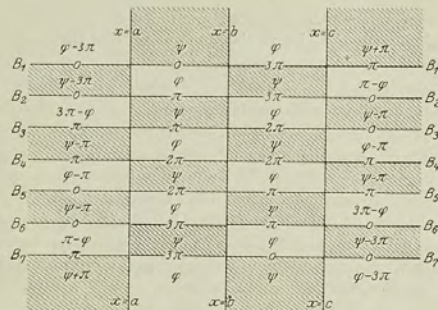 x=a x=b x=c
φ−3π ψ φ ψ+π
B₁ 0 0 3π π B₁
ψ−3π φ ψ π−φ
B₂ 0 π 3π 0 B₂
3π−φ ψ φ ψ−π
B₃ π π 2π 0 B₃
ψ−π φ ψ φ−π
B₄ π 2π 2π π B₄
φ−π ψ φ ψ−π
B₅ 0 2π π π B₅
ψ−π φ ψ 3π−φ
B₆ 0 3π π 0 B₆
π−φ ψ φ ψ−3π
B₇ π 3π 0 0 B₇
ψ+π φ ψ φ−3π
x=a x=b x=c